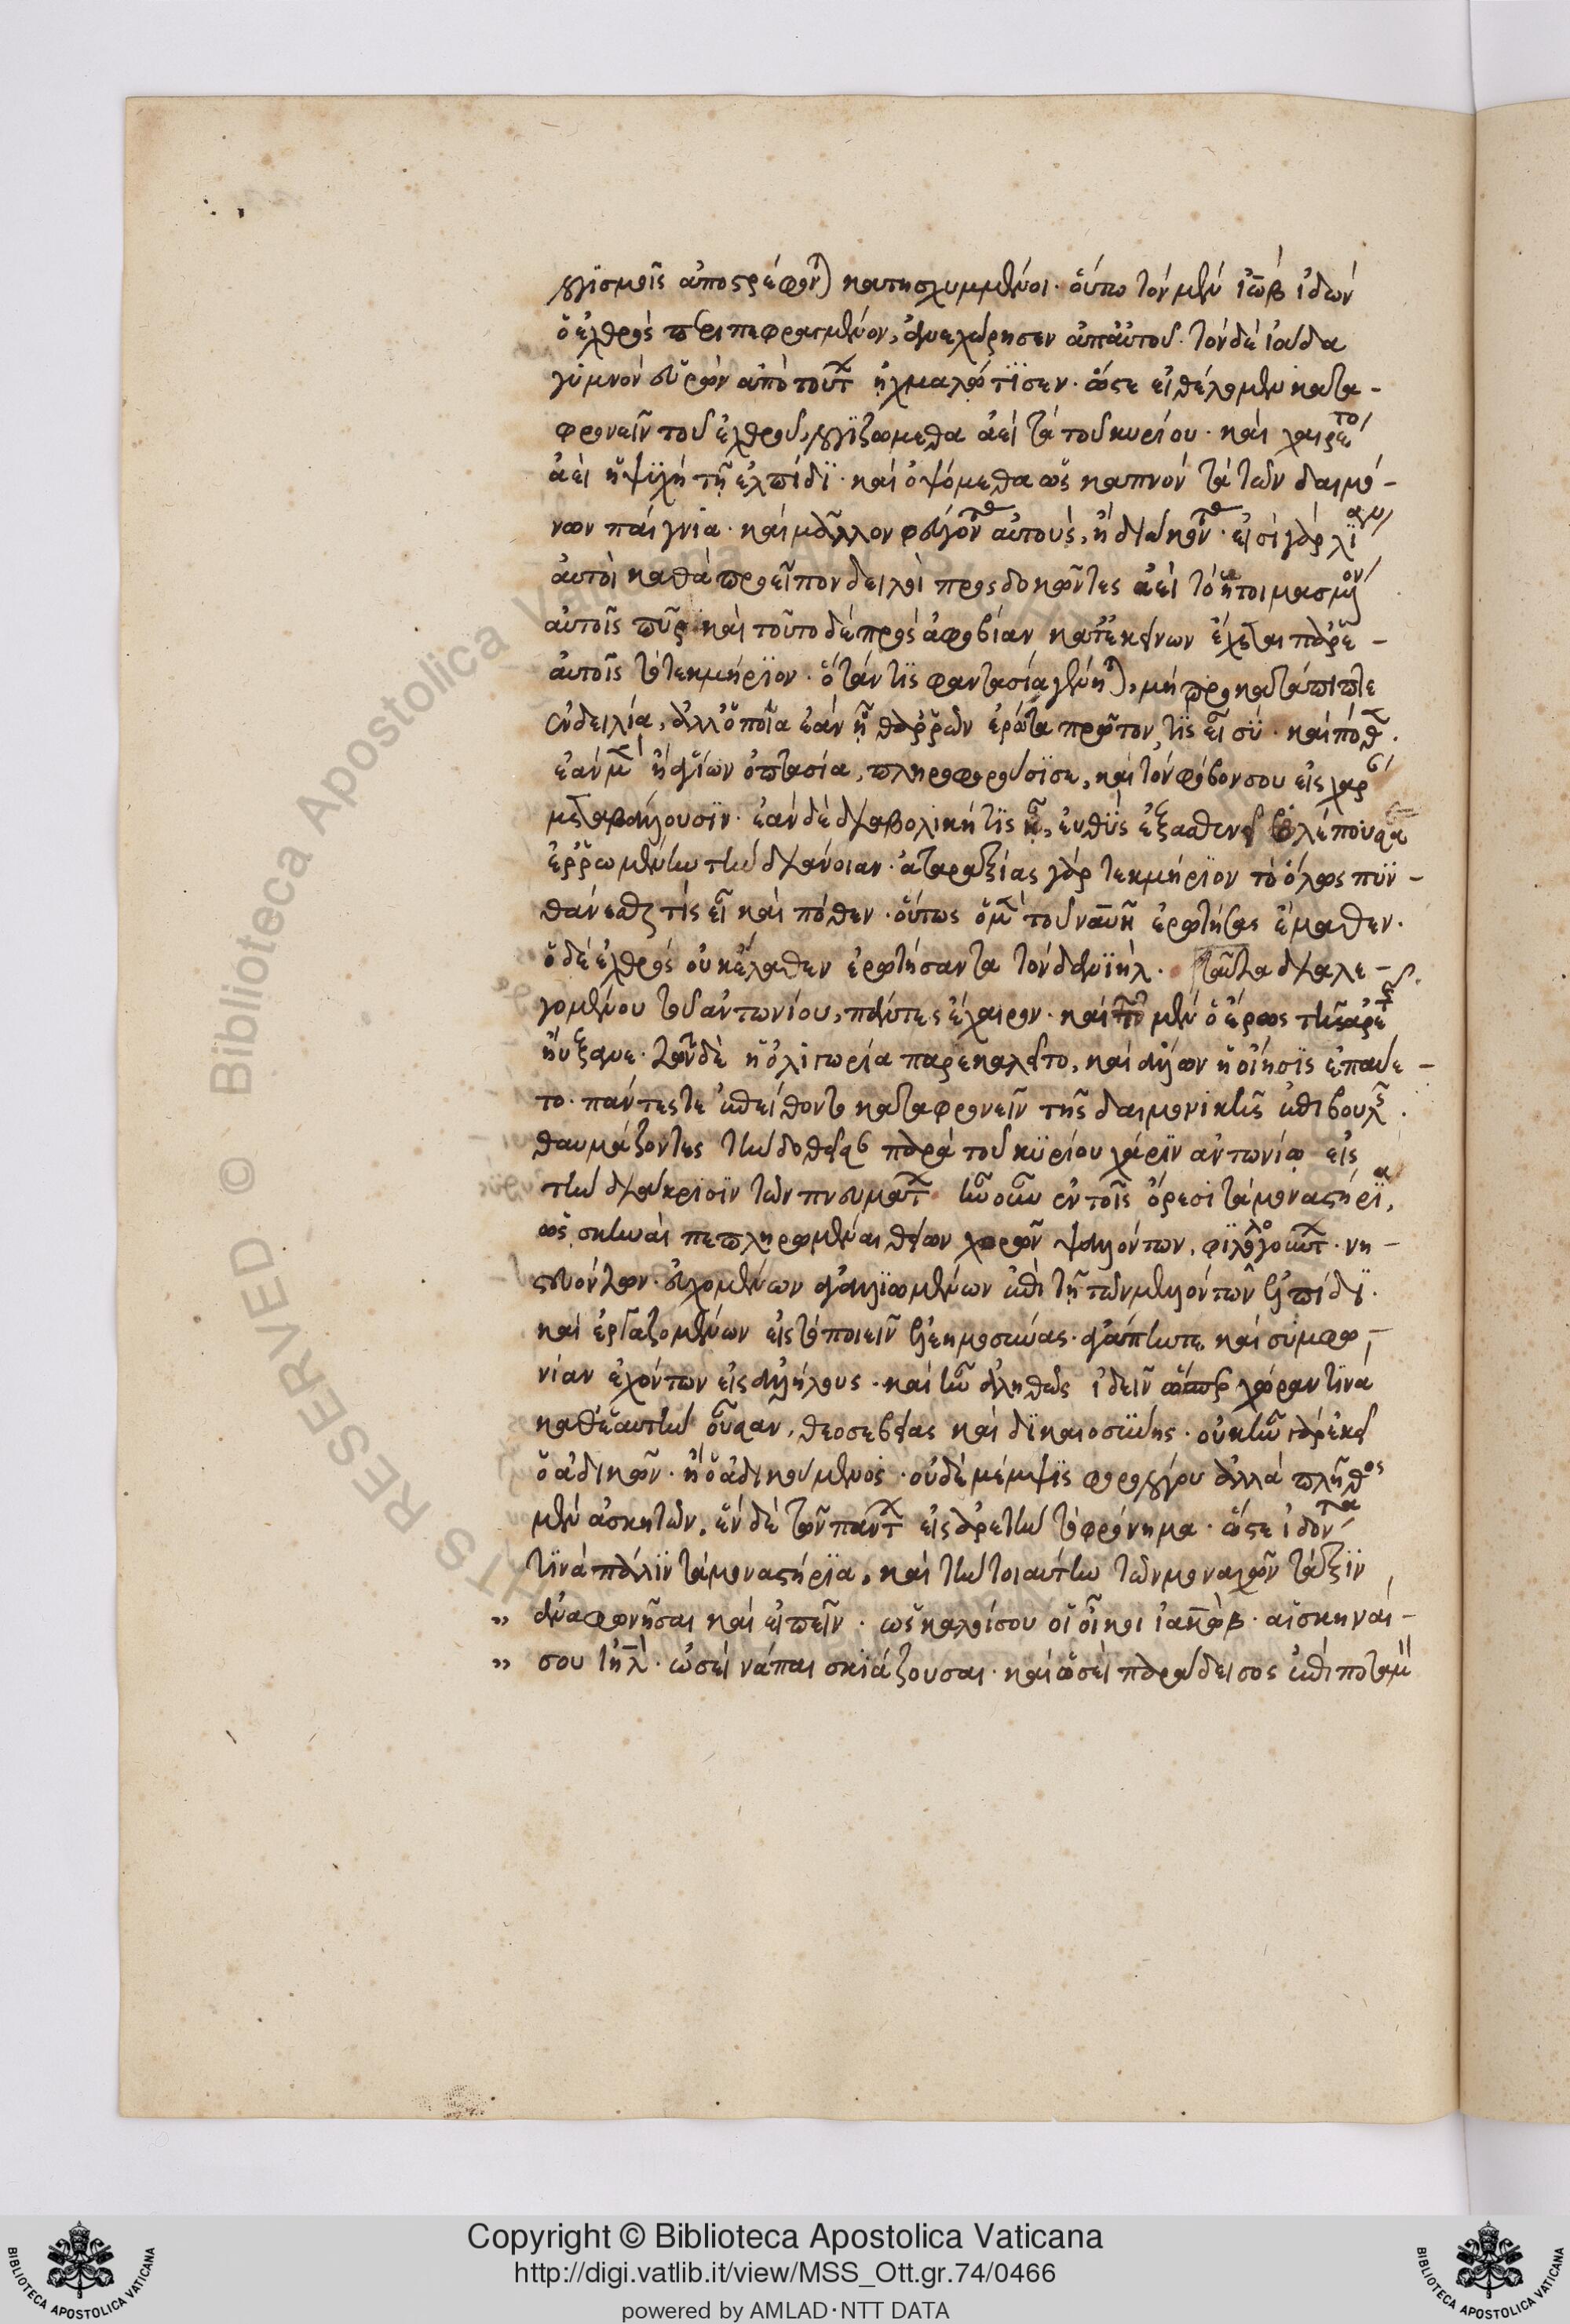 γισμοῖς ἀποστρέφονται κατησχυμμένοι. οὕτω τὸν μὲν ἰὼβ ἰδὼν
ὁ ἐχθρὸς περιπεφραγμένον, ἀνεχώρησεν ἀπ' αὐτοῦ. τὸν δὲ ἰούδα
γυμνὸν εὑρὼν ἀπὸ τούτων ἠχμαλώτισεν. ὥστε εἰ θέλομεν κατα-
φρονεῖν τοῦ ἐχθροῦ, λογιζώμεθα ἀεὶ τὰ τοῦ κυρίου. καὶ χαιρέτω
ἀεὶ ἡ ψυχὴ τῇ ἐλπίδι. καὶ ὀψόμεθα ὡς καπνὸν τὰ τῶν δαιμό-
νων παίγνια. καὶ μᾶλλον φεύγοντας αὐτοὺς, ἢ διώκοντας. εἰσὶ γὰρ λίαν
αὐτοὶ καθὰ προεῖπον δειλοὶ προσδοκῶντες ἀεὶ τὸ ἡτοιμασμένον
αὐτοῖς πῦρ καὶ τοῦτο δὲ πρὸς ἀφοβίαν κατ' ἐκείνων ἔχετε παρ' ἑ-
αυτοῖς τὸ τεκμήριον. ὅταν τις φαντασία γένηται, μὴ προκατάπιπτε
ἐν δειλίᾳ, ἀλλ' ὁποία ἐὰν ᾖ θαρρῶν ἐρώτα πρῶτον, τίς εἶ σύ. καὶ πόθεν.
ἐὰν μὲν ᾖ ἁγίων ὀπτασία, πληροφοροῦσί σε, καὶ τὸν φόβον σου εἰς χαρὰν
μεταβάλλουσιν. ἐὰν δὲ διαβολική τις ᾖ, εὐθὺς ἐξασθενεῖ βλέπουσα
ἐρρωμένην τὴν διάνοιαν. ἀταραξίας γὰρ τεκμήριον τὸ ὅλως πυν-
θάνεσθαι τίς εἶ καὶ πόθεν. οὕτως ὁ μὲν τοῦ ναυῆ ἐρωτήσας ἔμαθεν.
ὁ δὲ ἐχθρὸς οὐκ ἔλαθεν ἐρωτήσαντα τὸν δανιήλ. ταῦτα διαλε-
γομένου τοῦ ἀντωνίου, πάντες ἔχαιρον. καὶ τῶν μὲν ὁ ἔρως τῆς ἀρετῆς
ηὔξανε. τῶν δὲ ἡ ὀλιγωρία παρεκαλεῖτο, καὶ ἄλλων ἡ οἴησις ἐπαύε-
το. πάντες τε ἐπείθοντο καταφρονεῖν τῆς δαιμονικῆς ἐπιβουλῆς.
θαυμάζοντες τὴν δοθεῖσαν παρὰ τοῦ κυρίου χάριν ἀντωνίῳ εἰς
τὴν διάκρισιν τῶν πνευμάτων ἦν οὖν ἐν τοῖς ὄρεσι τὰ μοναστήρια,
ὡς σκηναὶ πεπληρωμέναι θείων χορῶν ψαλλόντων, φιλολογούντων. νη-
στευόντων. εὐχομένων ἀγαλλιωμένων ἐπὶ τῇ τῶν μελλόντων ἐλπίδι.
καὶ ἐργαζομένων εἰς τὸ ποιεῖν ἐλεημοσύνας. ἀγάπην τε καὶ συμφω-
νίαν ἐχόντων εἰς ἀλλήλους. καὶ ἦν ἀληθῶς ἰδεῖν ὥσπερ χώραν τινὰ
καθ' ἑαυτὴν οὖσαν, θεοσεβείας καὶ δικαιοσύνης. οὐκ ἦν γὰρ ἐκεῖ
ὁ ἀδικῶν. ἢ ὁ ἀδικούμενος. οὐδὲ μέμψις φορολόγου ἀλλὰ πλῆθος
μὲν ἀσκητῶν, ἓν δὲ τῶν πάντων εἰς ἀρετὴν τὸ φρόνημα. ὥστε ἰδόντα
τινὰ πάλιν τὰ μοναστήρια, καὶ τὴν τοιαύτην τῶν μοναχῶν τάξιν
" ἀναφωνῆσαι καὶ εἰπεῖν. ὡς καλοί σου οἱ οἶκοι ἰακώβ. αἱ σκηναί
" σου ἰηλ. ὡσεὶ νάπαι σκιάζουσαι. καὶ ὡσεὶ παράδεισος ἐπὶ ποταμῶν